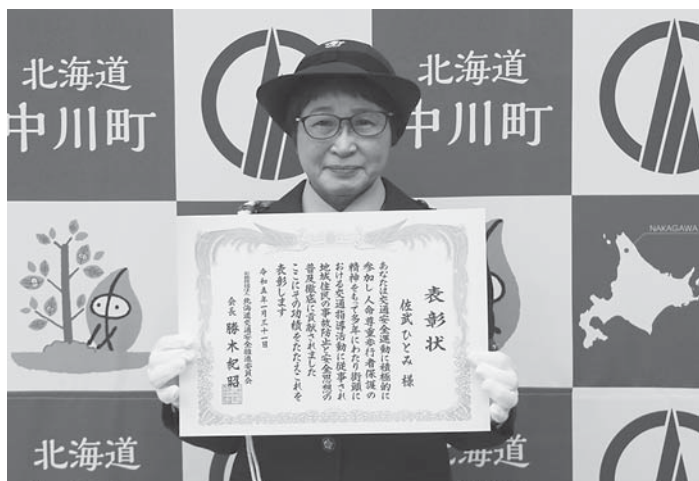 北海道
中川町
北海道
中川町
NAKAGAWA
表彰状
佐武ひとみ 様
あなたは交通安全運動に積極的に
参加し人命尊重歩行者保護の
精神をもって多年にわたり街頭に
おける交通指導活動に従事され
地域住民の事故防止と安全思想の
普及徹底に貢献されました
ここにその功績をたたえこれを
表彰します
令和五年一月三十一日
北海道交通安全推進委員会
会長 勝木紀昭
北海道
海道